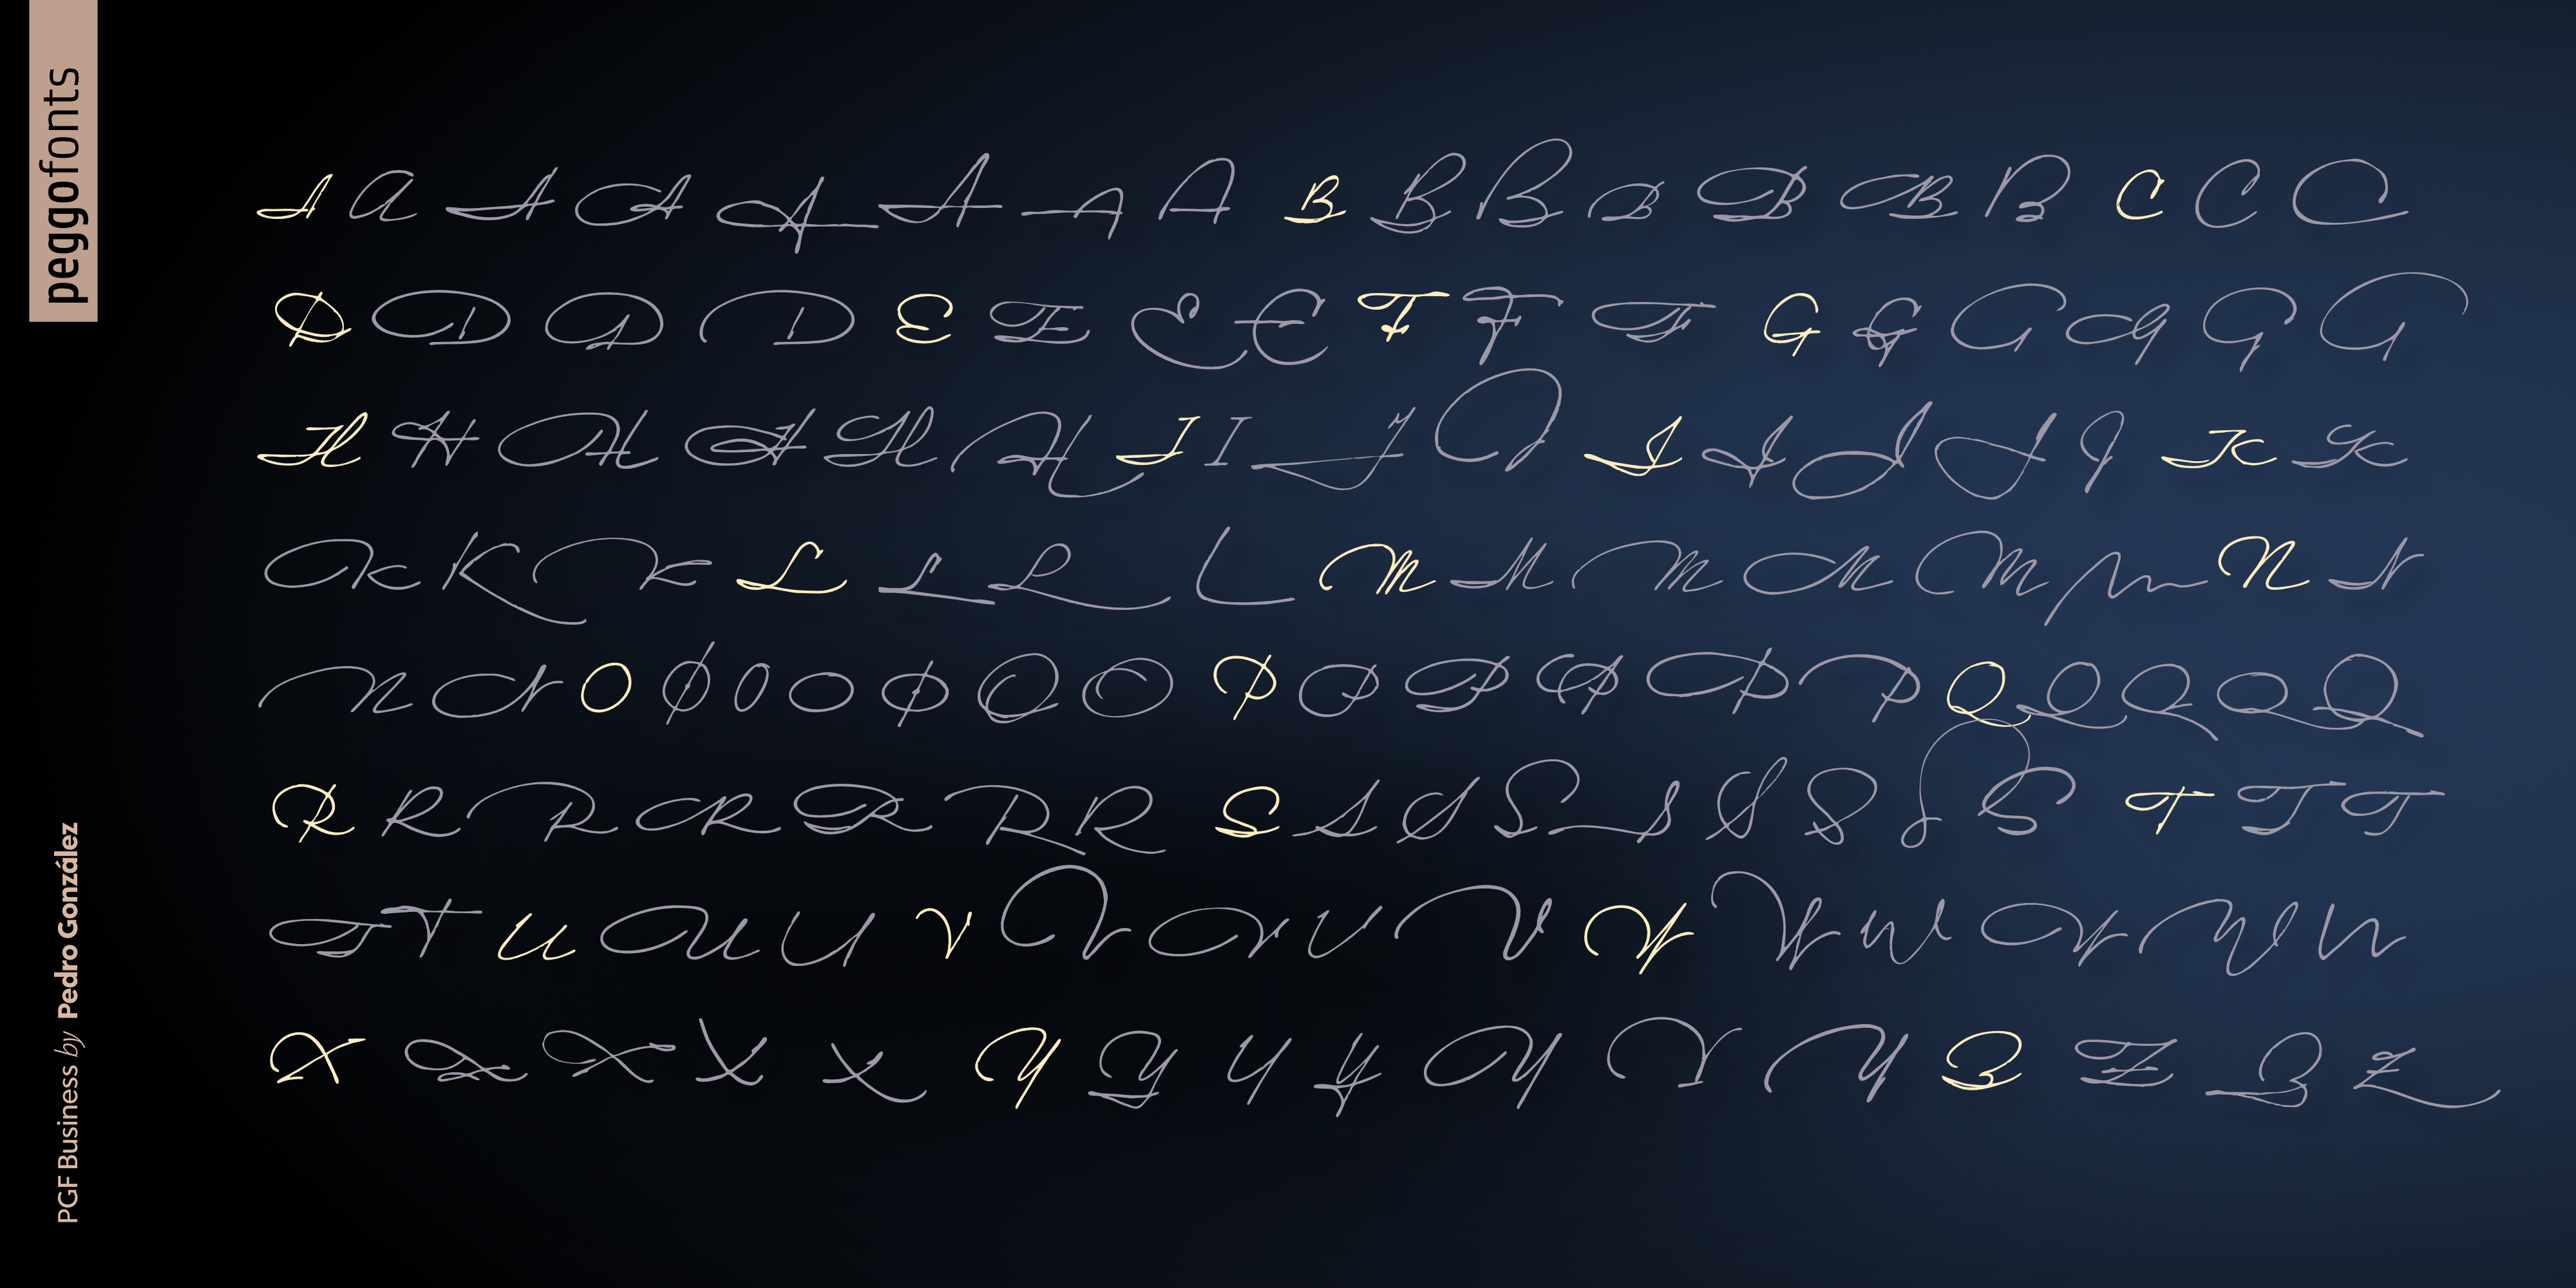 peggofonts
PGF Business by Pedro González
A A A A A A A A B B B B B B B C C C
D D D D E E E E F F F G G G G G G
H H H H H H I I I I J J J J J K K
K K K L L L L M M M M M M N N
N N O O O O O O O P P P P P P Q Q Q Q Q
R R R R R R R S S S S S S S S S T T T
T T U U U V V V V V W W W W W W
X X X X X Y Y Y Y Y Y Y Z Z Z Z